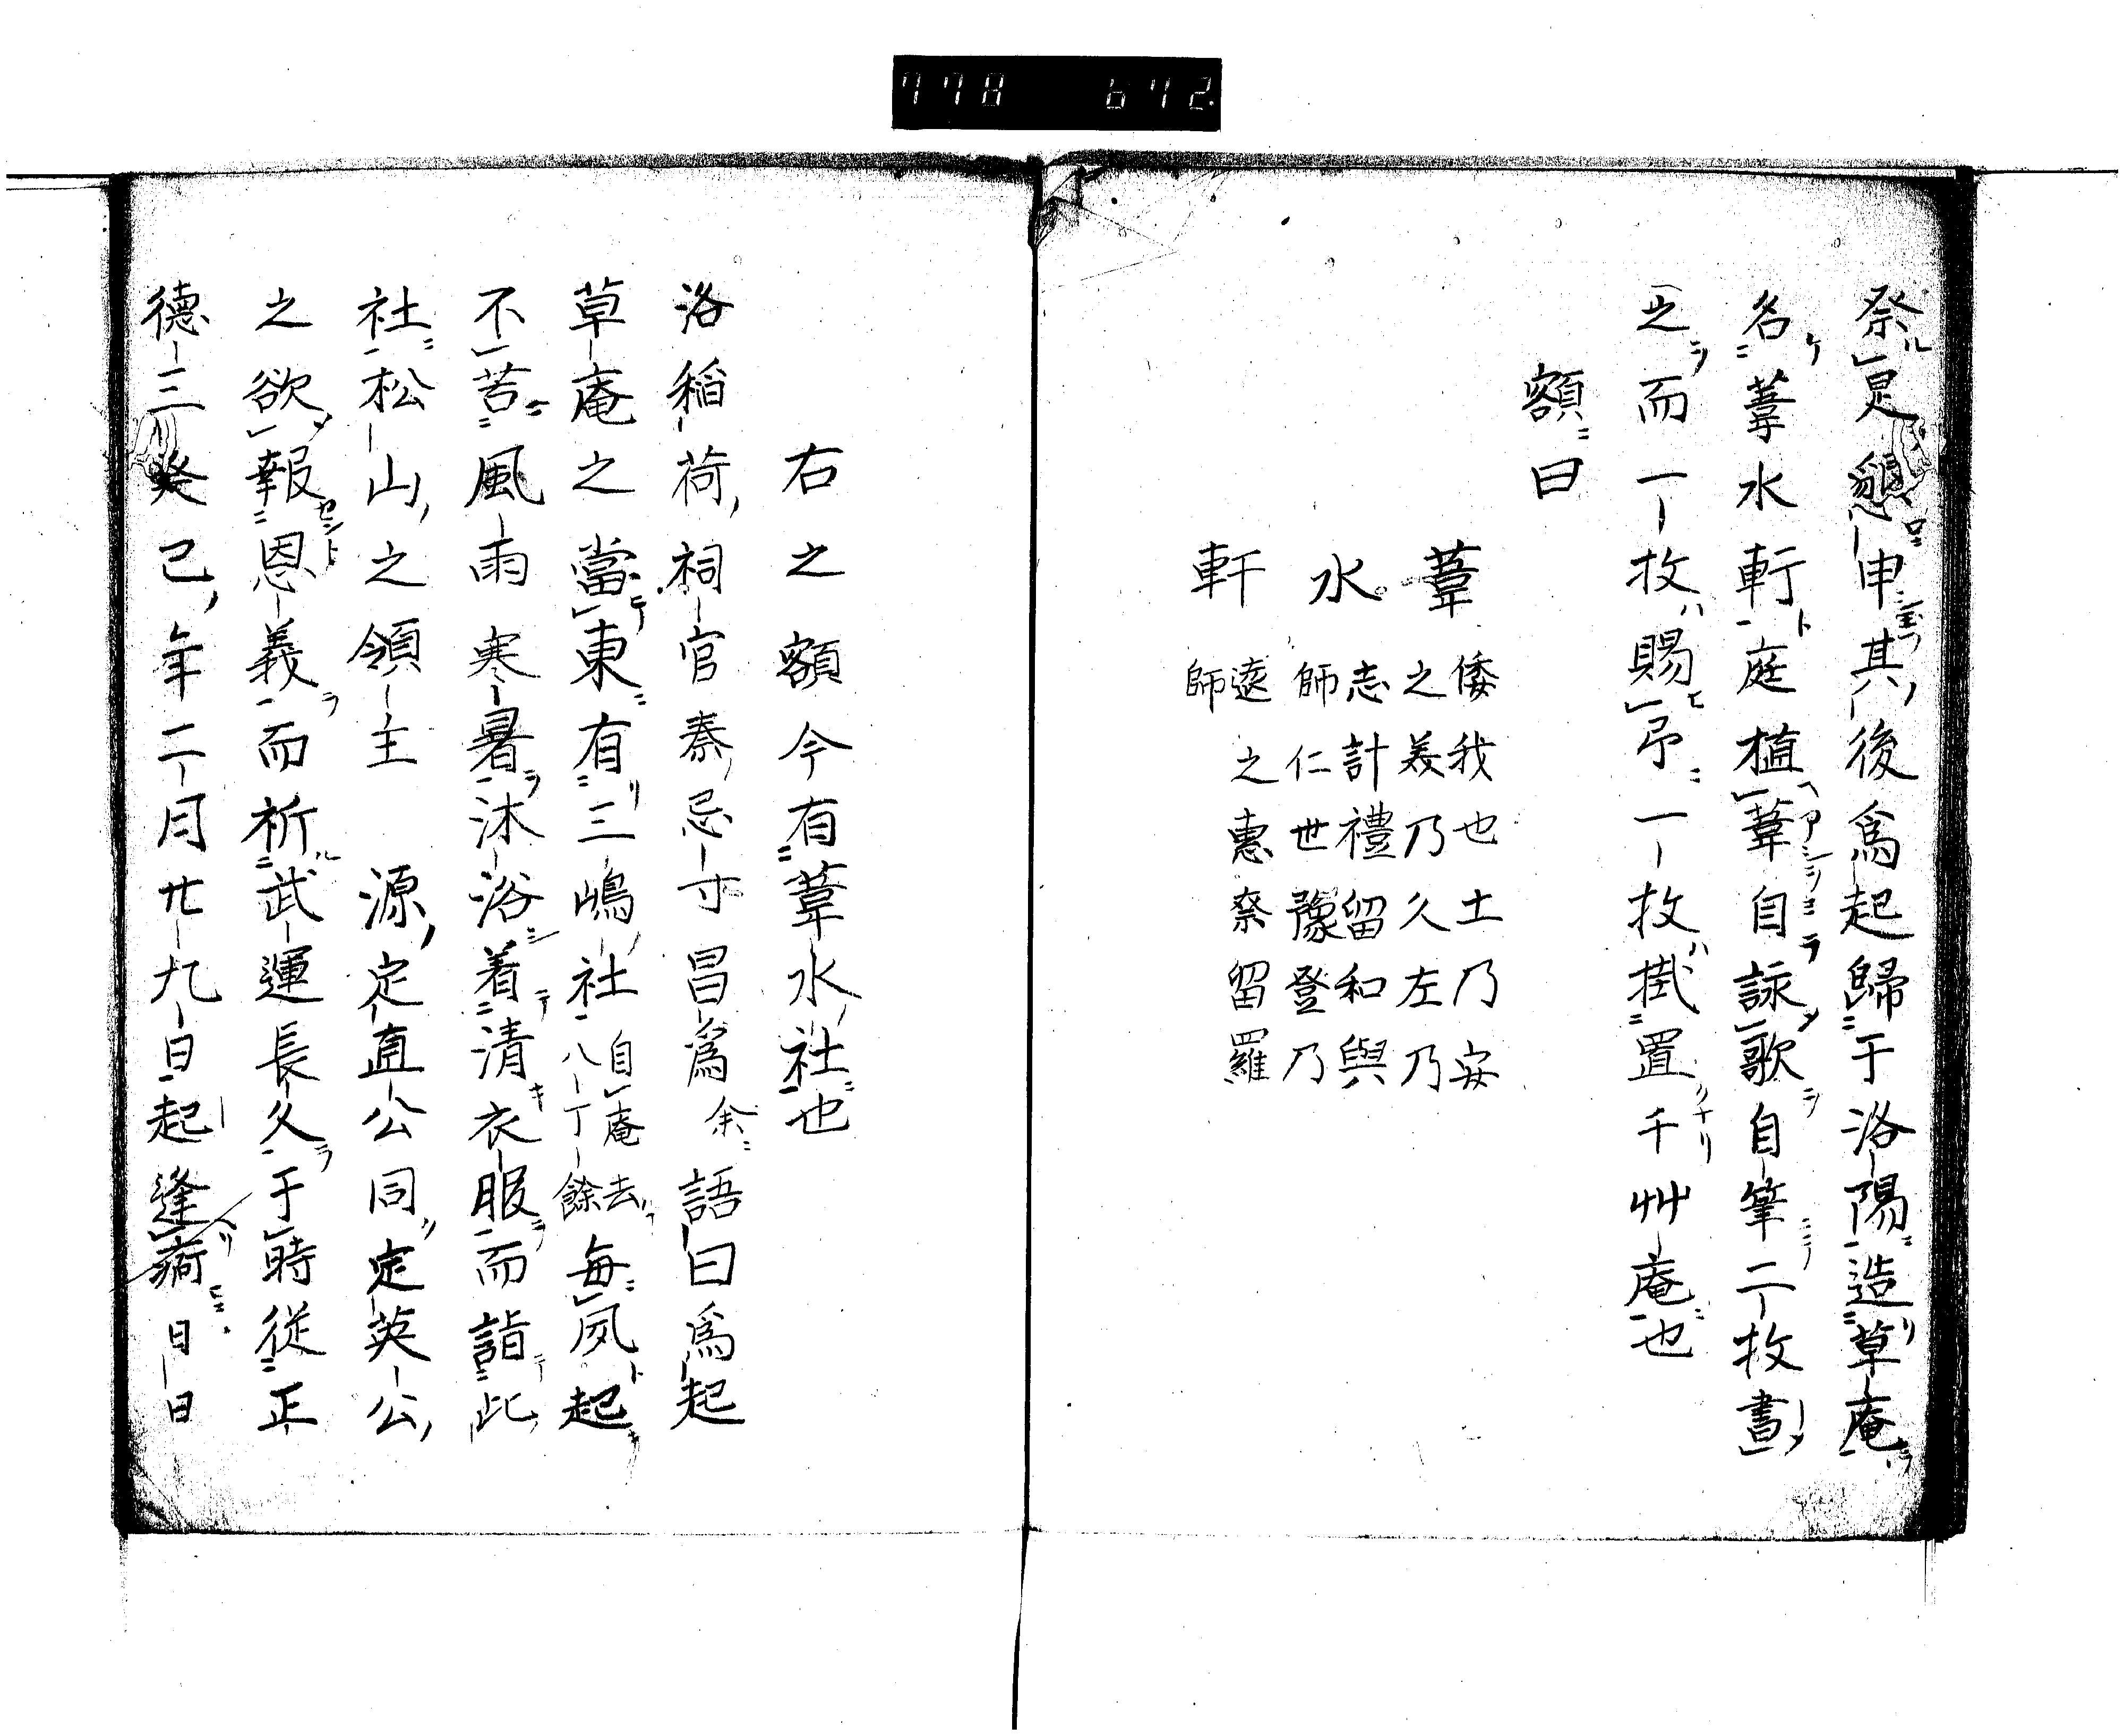 778 672
祭是懇申其後為起歸于洛陽造草庵
名葦水軒庭植葦自詠歌自筆二枚書
之而一枚賜予一枚掛置千艸庵也
額曰
葦 倭我也土乃安
之美乃久左乃
水 志計禮留和與
師仁世豫登乃
軒 遠之惠祭留羅
師
右之額今有葦水社也
洛稲荷祠官秦忌寸昌為余語曰為起
草庵之當東有三嶋社 自庵去八丁餘 毎夙起
不苦風雨寒暑沐浴着清衣服而詣此
社松山之領主 源定直公同定英公
之欲報恩義而祈武運長久于時従正
徳三癸巳年二月廿九日起逢 日日